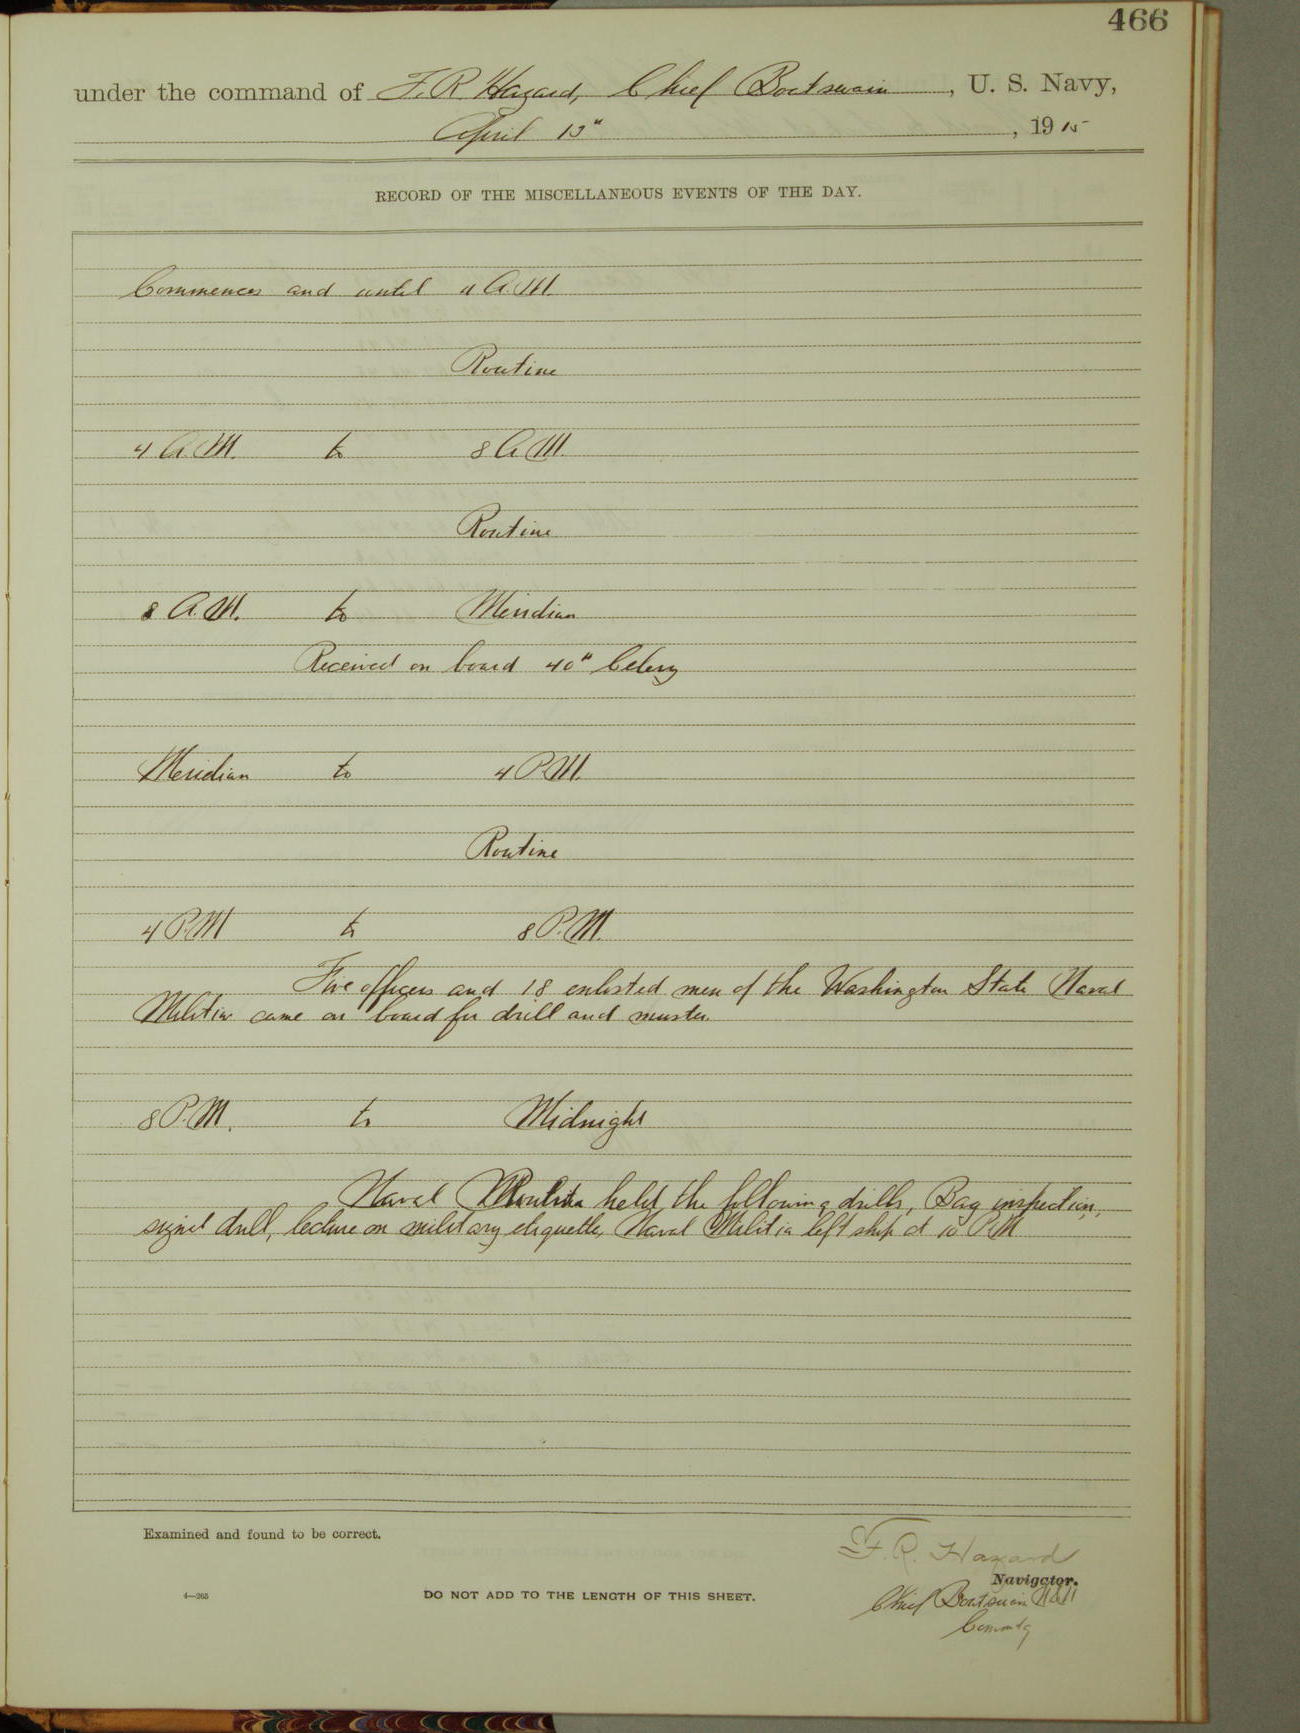 466
under the command of F. R. Hazard, Chief Boatswain, U. S. Navy,
April 13", 1915
RECORD OF THE MISCELLANEOUS EVENTS OF THE DAY.
Commences and until 4 A.M.
Routine
4 A.M. to 8 A.M.
Routine
8 A.M. to Meridian
Received on board 40# Celery
Meridian to 4 P.M.
Routine
4 P.M to 8 P.M.
Five officers and 18 enlisted men of the Washington State Naval
Militia came on board for drill and muster.
8 P.M. to Midnight
Naval Militia held the following drills, Bag inspection,
signal drill, lecture on military etiquette, Naval Militia left ship at 10 P.M
Examined and found to be correct.
F. R. Hazard
Navigator.
Chief Boatswain USN
Commdg
4—265
DO NOT ADD TO THE LENGTH OF THIS SHEET.